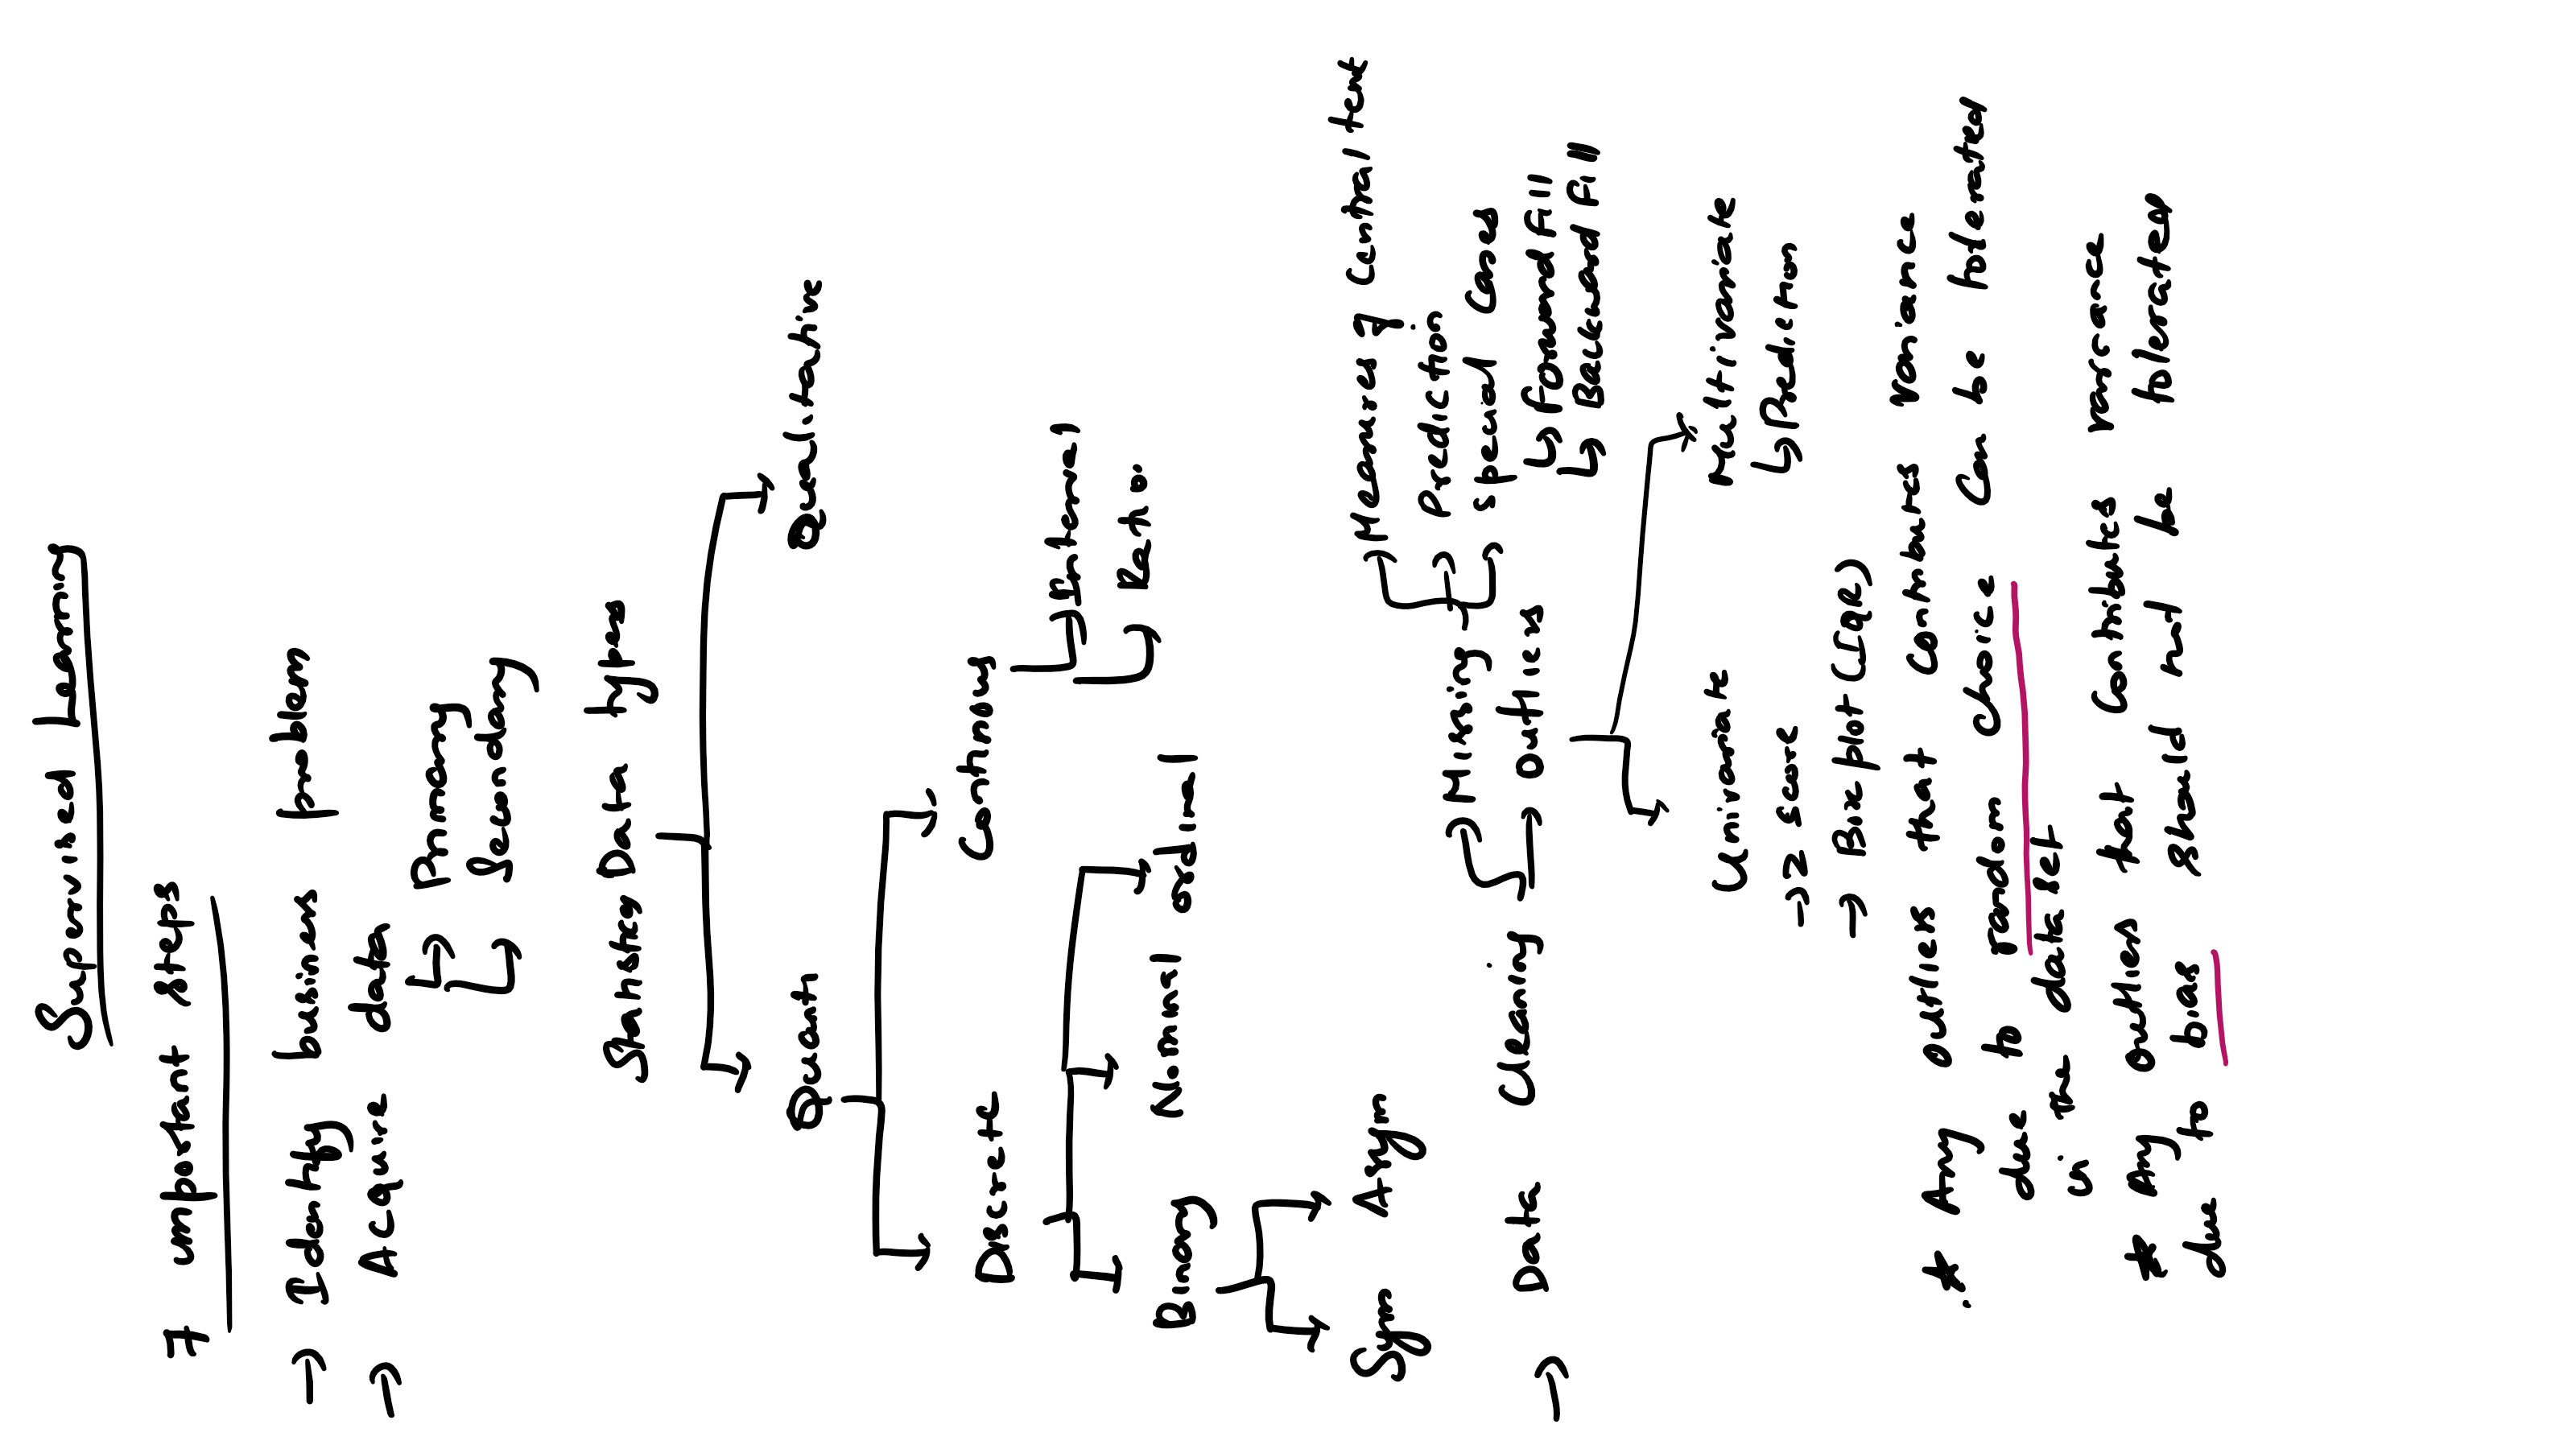 Supervised Learning
7 important steps
→ Identify business problem
→ Acquire data
↳ Primary
↳ Secondary
Statistics Data types
Quanti Qualitative
Discrete Continous
→ Interval
→ Ratio
Binary Nominal ordinal
Sym Asym
→ Data Cleaning
→ Missing
→ Measures of Central tent
→ Prediction
→ special cases
↳ forward fill
↳ Backward fill
→ outliers
Univariate Multivariate
→ Z score ↳ Prediction
→ Box plot (IQR)
* Any outliers that contributes variance
due to random choice can be tolerated
in the dataset
* Any outliers that contributes variance
due to bias should not be tolerated